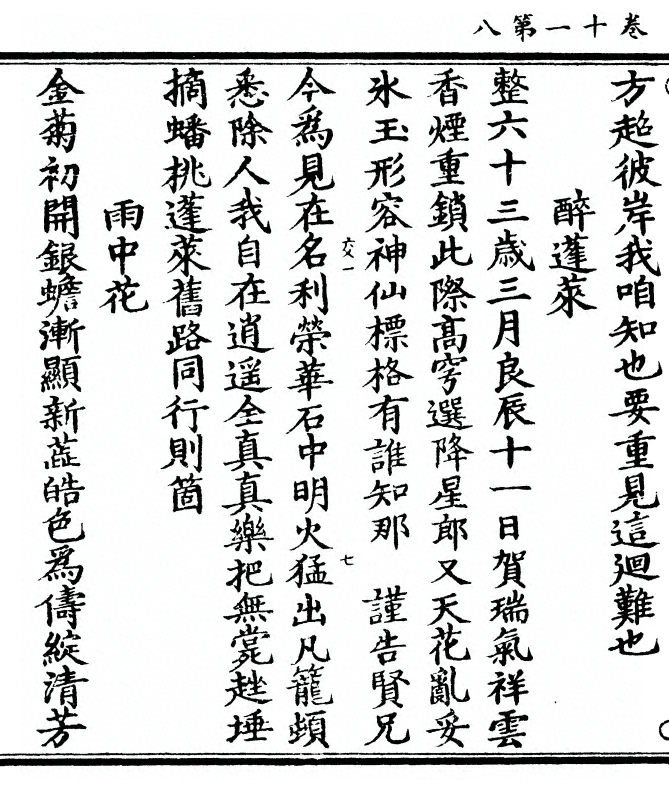 卷十一第八
方超彼岸我咱知也要重見這廻難也
醉蓬萊
整六十三歲三月良辰十一日賀瑞氣祥雲
香煙重鎖此際高穹選降星郎又天花亂妥
氷玉形容神仙標格有誰知那 謹告賢兄
今爲見在名利榮華石中明火猛出凡籠頓
攵一
七
悉除人我自在逍遥全真真樂把無甍
摘蟠桃蓬萊舊路同行則箇
雨中花
金菊初開銀蟾漸顯新蘂皓色爲儔綻清芳